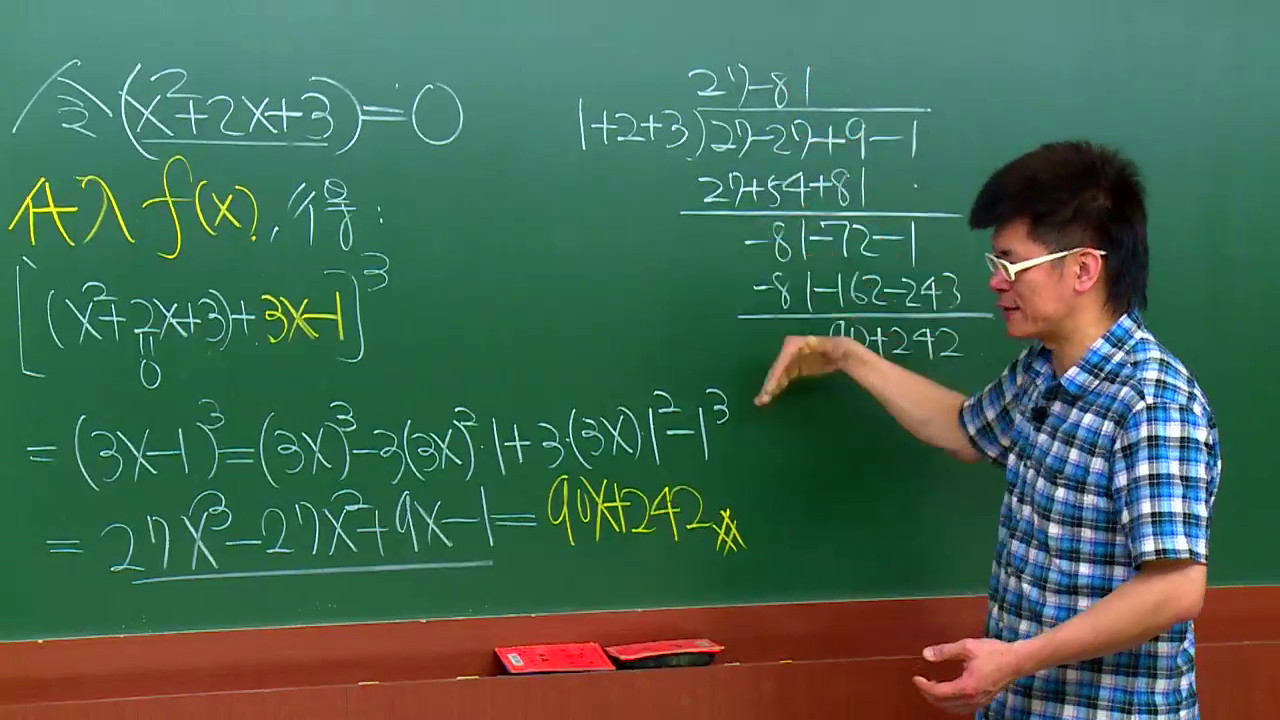 令(x²+2x+3)=0
代入f(x),得:
[(x²+2x+3)+3x-1]³
0
=(3x-1)³=(3x)³-3(3x)²·1+3·(3x)1²-1³
=27x³-27x²+9x-1=90x+242
27-81
1+2+3)27-27+9-1
27+54+81
-81-72-1
-81-162-243
90+242